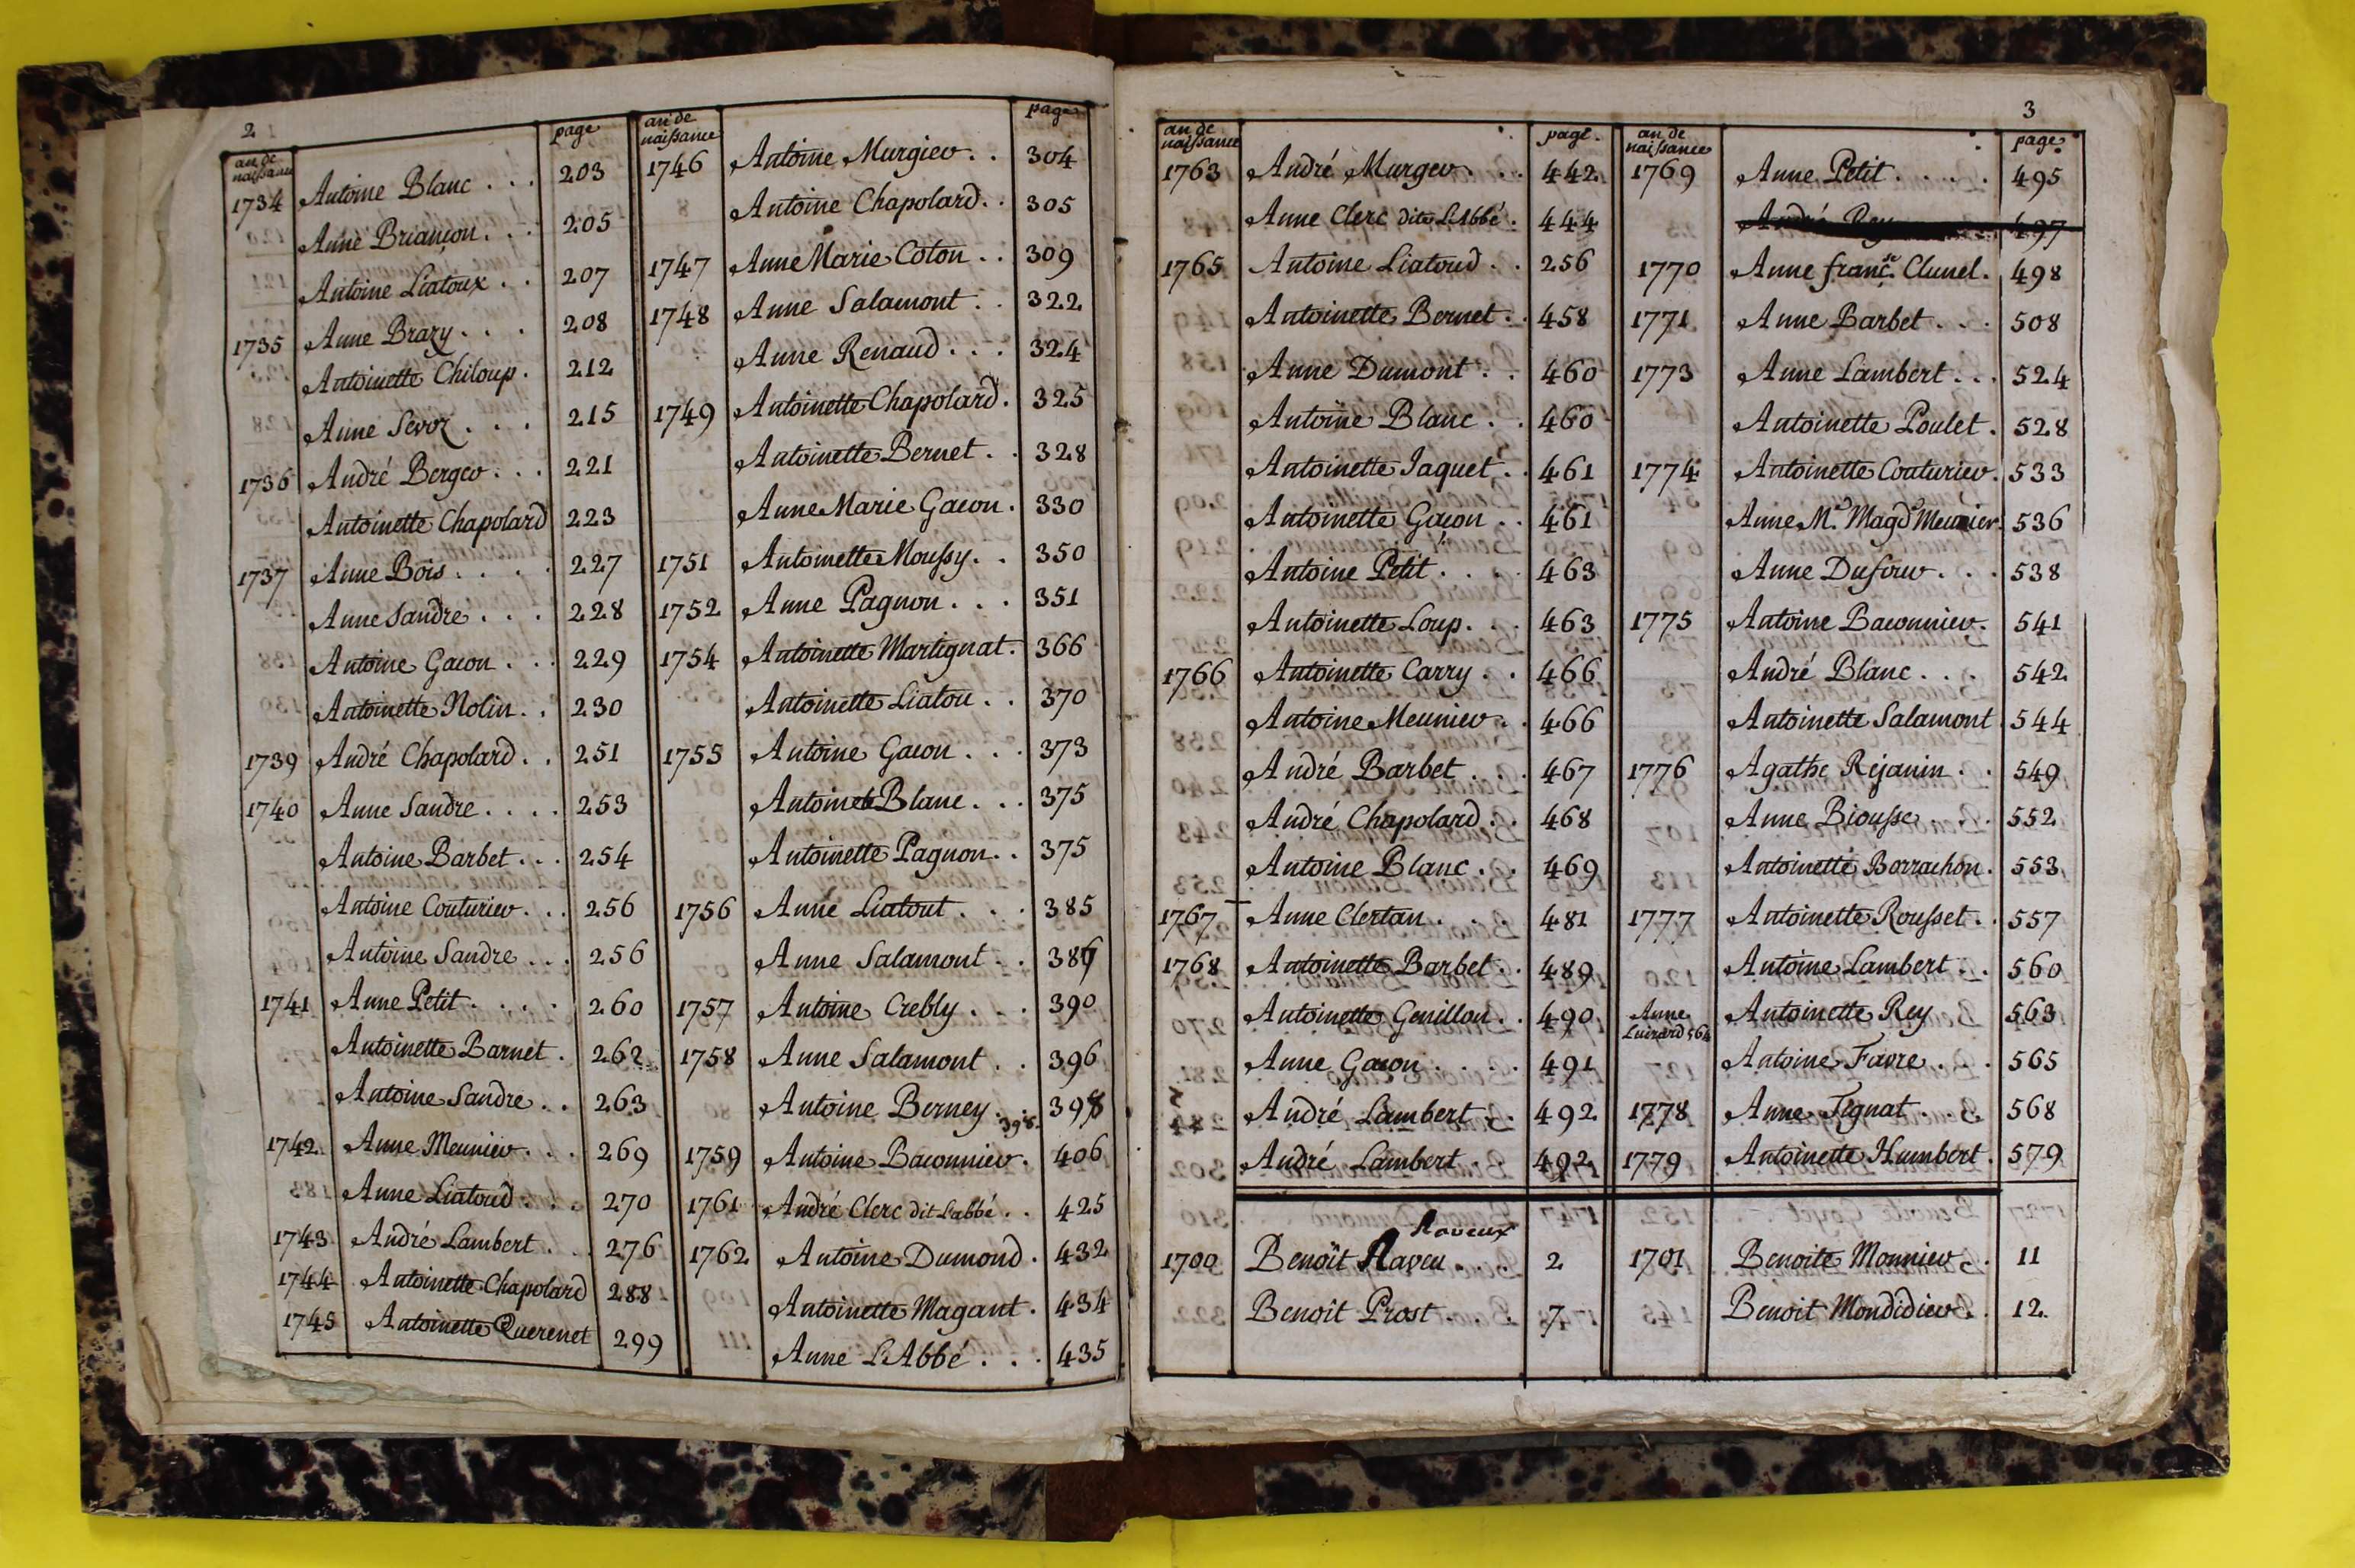 2
an de naissance page
1734 Antoine Blanc . . . 203
Anne Briançon . . . 205
Antoine Liatoux . . 207
1735 Anne Brazy . . . 208
Antoinette Chiloup . 212
Anne Sevoz . . . 215
1736 André Berger . . . 221
Antoinette Chapolard 223
1737 Anne Bois . . . . 227
Anne Sandre . . . 228
Antoine Gacon . . . 229
Antoinette Nolin . . 230
1739 André Chapolard . . 251
1740 Anne Sandre . . . . 253
Antoine Barbet . . . 254
Antoine Couturier . . . 256
Antoine Sandre . . . 256
1741 Anne Petit . . . . 260
Antoinette Barnet . 262
Antoine Sandre . . 263
1742 Anne Meunier . . . 269
Anne Liatoud . . . 270
1743 André Lambert . . . 276
1744 Antoinette Chapolard 288
1745 Antoinette Querenet 299
an de naissance page
1746 Antoine Murgier . . 304
Antoine Chapolard . . 305
1747 Anne Marie Coton . . 309
1748 Anne Salamont . . 322
Anne Renaud . . . 324
1749 Antoinette Chapolard . 325
Antoinette Bernet . . 328
Anne Marie Gacon . 330
1751 Antoinette Moussy . . 350
1752 Anne Pagnon . . . 351
1754 Antoinette Martignat . 366
Antoinette Liatou . . 370
1755 Antoine Gacon . . . 373
Antoinete Blanc . . . 375
Antoinette Pagnon . . 375
1756 Anne Liatout . . . 385
Anne Salamont . . 386
1757 Antoine Crebly . . . 390
1758 Anne Salamont . . 396
Antoine Berney . . 398
1759 Antoine Baconnier . 406
1761 André Clerc dit Labbé . . 425
1762 Antoine Dumond . 432
Antoinette Magant . 434
Anne L'Abbé . . . 435
3
an de naissance page .
1763 André Murger . . . 442
Anne Clerc dite L'Abbé . 444
1765 Antoine Liatoud . . 256
Antoinette Bernet . . 458
Anne Dumont . . 460
Antoine Blanc . . 460
Antoinette Jaquet . . 461
Antoinette Gacon . . 461
Antoine Petit . . . . 463
Antoinette Loup . . . 463
1766 Antoinette Carry . . 466
Antoine Meunier . . 466
André Barbet . . . 467
André Chapolard . . 468
Antoine Blanc . . . 469
1767 Anne Clertan . . . 481
1768 Antoinette Barbet . . 489
Antoinette Genillon . . 490
Anne Gacon . . . . 491
André Lambert . . 492
André Lambert . . 492
an de naissance page
1769 Anne Petit . . . . 495
André Rey 497
1770 Anne franc.se Clunel . 498
1771 Anne Barbet . . . 508
1773 Anne Lambert . . . 524
Antoinette Poulet . 528
1774 Antoinette Couturier . 533
Anne M.e Magd.e Meunier 536
Anne Dufour . . . 538
1775 Antoine Baconnier . 541
André Blanc . . . 542
Antoinette Salamont 544
1776 Agathe Réjanin . . 549
Anne Biousse . . . 552
Antoinette Borrachon . 553
1777 Antoinette Rousset . . 557
Antoine Lambert . . 560
Antoinette Rey . . 563
Anne Luirard 564
Antoine Favre . . . 565
1778 Anne Tignat . . . 568
1779 Antoinette Humbert . 579
Raveux
1700 Benoît Raveu . . . . 2
Benoit Prost . . . . 7
1701 Benoite Monnier . . 11
Benoit Mondidier . . 12